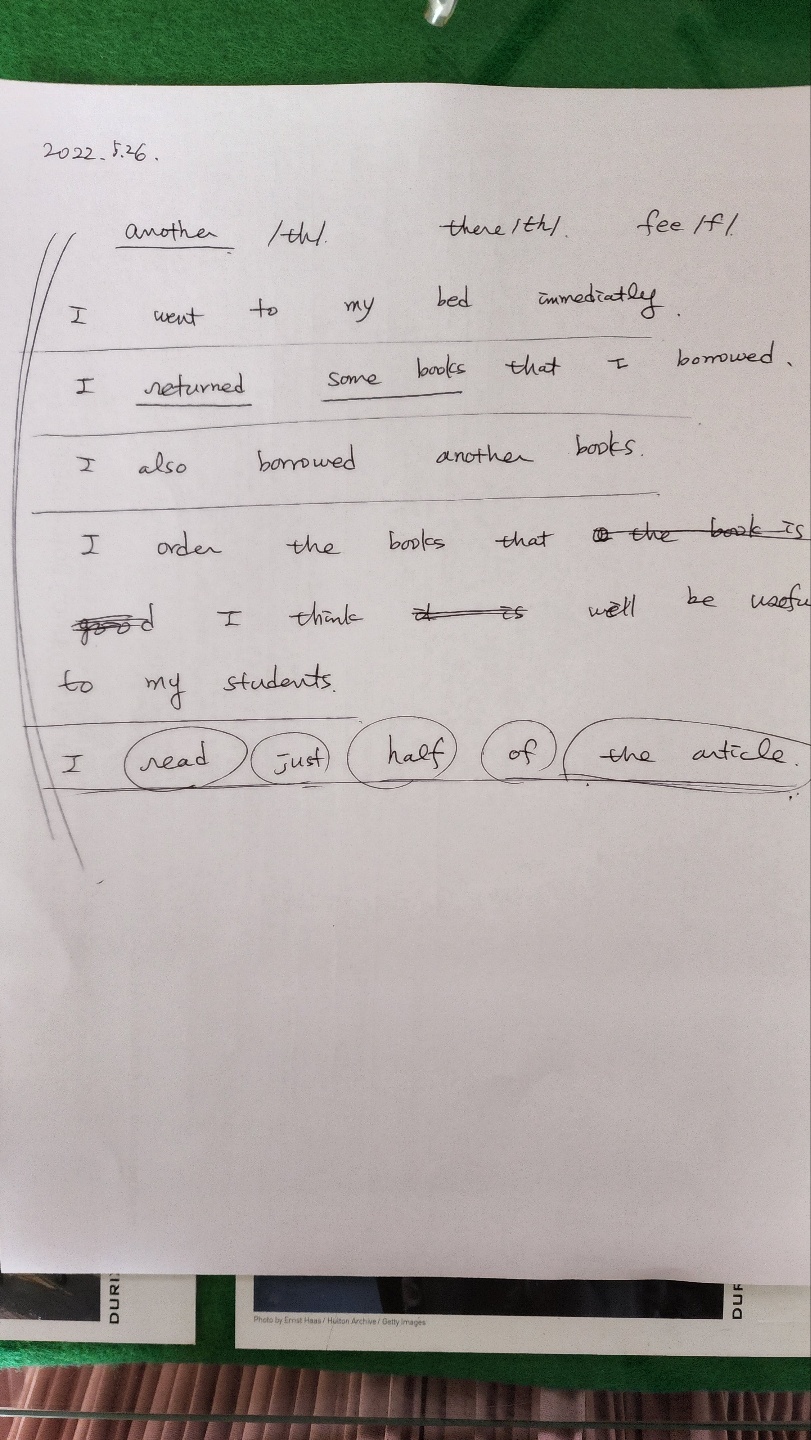 2022.5.26.
another /th/. there /th/. fee /f/.
I went to my bed immediatly.
I returned some books that I borrowed.
I also borrowed another books.
I order the books that the book is
good I think is well be usefu
to my students.
I read just half of the article.
DURI
DUR
Photo by Ernst Haas / Hulton Archive / Getty Images